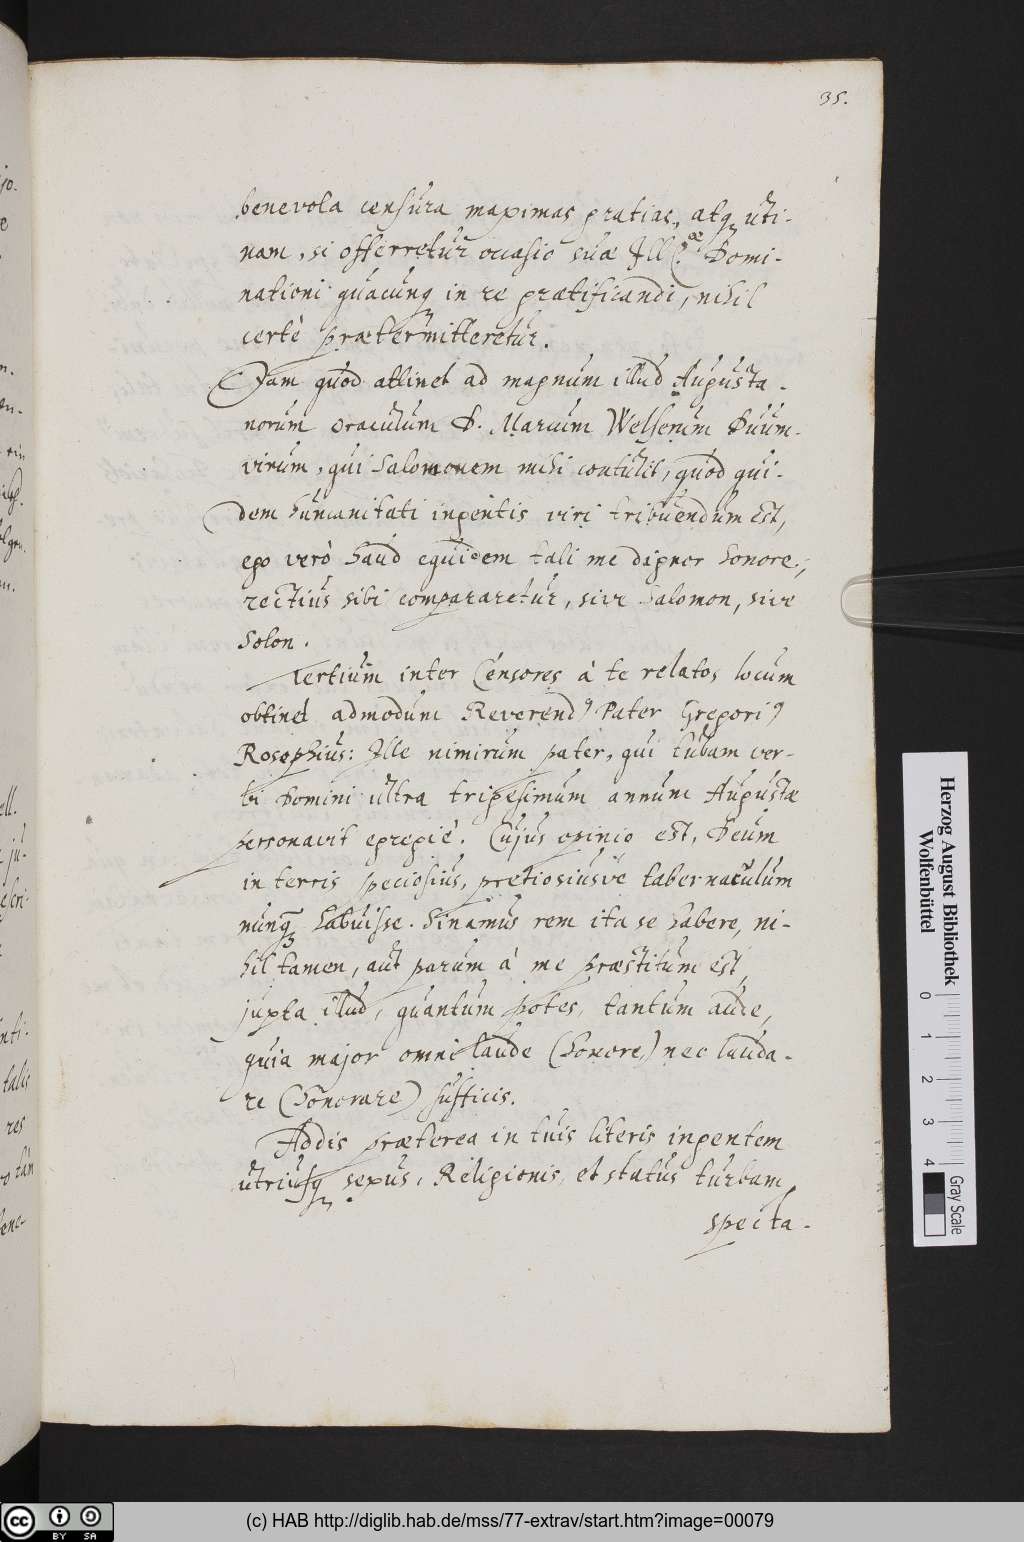 35.
benevola censura maximas gratias, atq3 uti-
nam, si offerretur occasio suæ Ill.æ Domi-
nationi quacunq3 in re gratificandi, nihil
certè prætermitteretur.
Jam quod attinet ad magnum illud Augusta-
norum oraculum D. Marcum Welserum Duum-
virum, qui Salomonem mihi contulit, quod qui-
dem humanitati ingentis viri tribuendum est,
ego verò haud equidem tali me dignor honore;
rectius sibi compararetur, sive Salomon, sive
Solon.
Tertium inter Censores à te relatos locum
obtinet admodum Reverend9 Pater Gregori9
Rosephius: Ille nimirum pater, qui tubam ver-
bi Domini ultra trigesimum annum Augustæ
personavit egregiè. Cujus opinio est, Deum
in terris speciosius, pretiosiusve tabernaculum
nunq3 habuisse. Sinamus rem ita se habere, ni-
hil tamen, aut parum à me præstitum est,
juxta illud, quantum potes, tantum aude,
quia major omni laude (honore,) nec lauda-
re (honorare) sufficis.
Addis præterea in tuis literis ingentem
utriusq3 sexus, Religionis, et status turbam
specta-
Herzog August Bibliothek
Wolfenbüttel
0 1 2 3 4
Gray Scale
cc BY SA
(c) HAB http://diglib.hab.de/mss/77-extrav/start.htm?image=00079